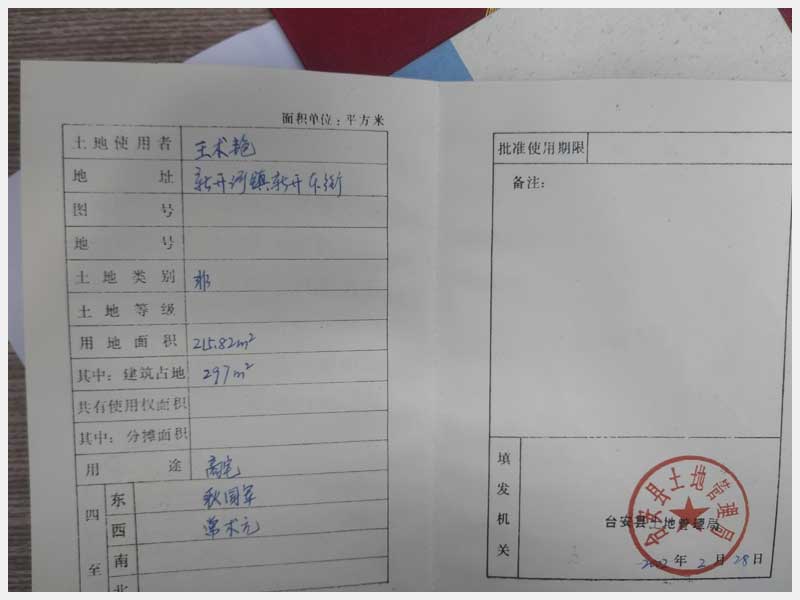 面积单位：平方米
土地使用者 王术艳
地址 新开河镇新开东街
图号
地号
土地类别
土地等级
用地面积 215.82m²
其中：建筑占地 297m²
共有使用权面积
其中：分摊面积
用途 商宅
四至
东
西 常术元
南
北
批准使用期限
备注：
填发机关
台安县土地管理局
台安县土地管理局
2002年2月28日